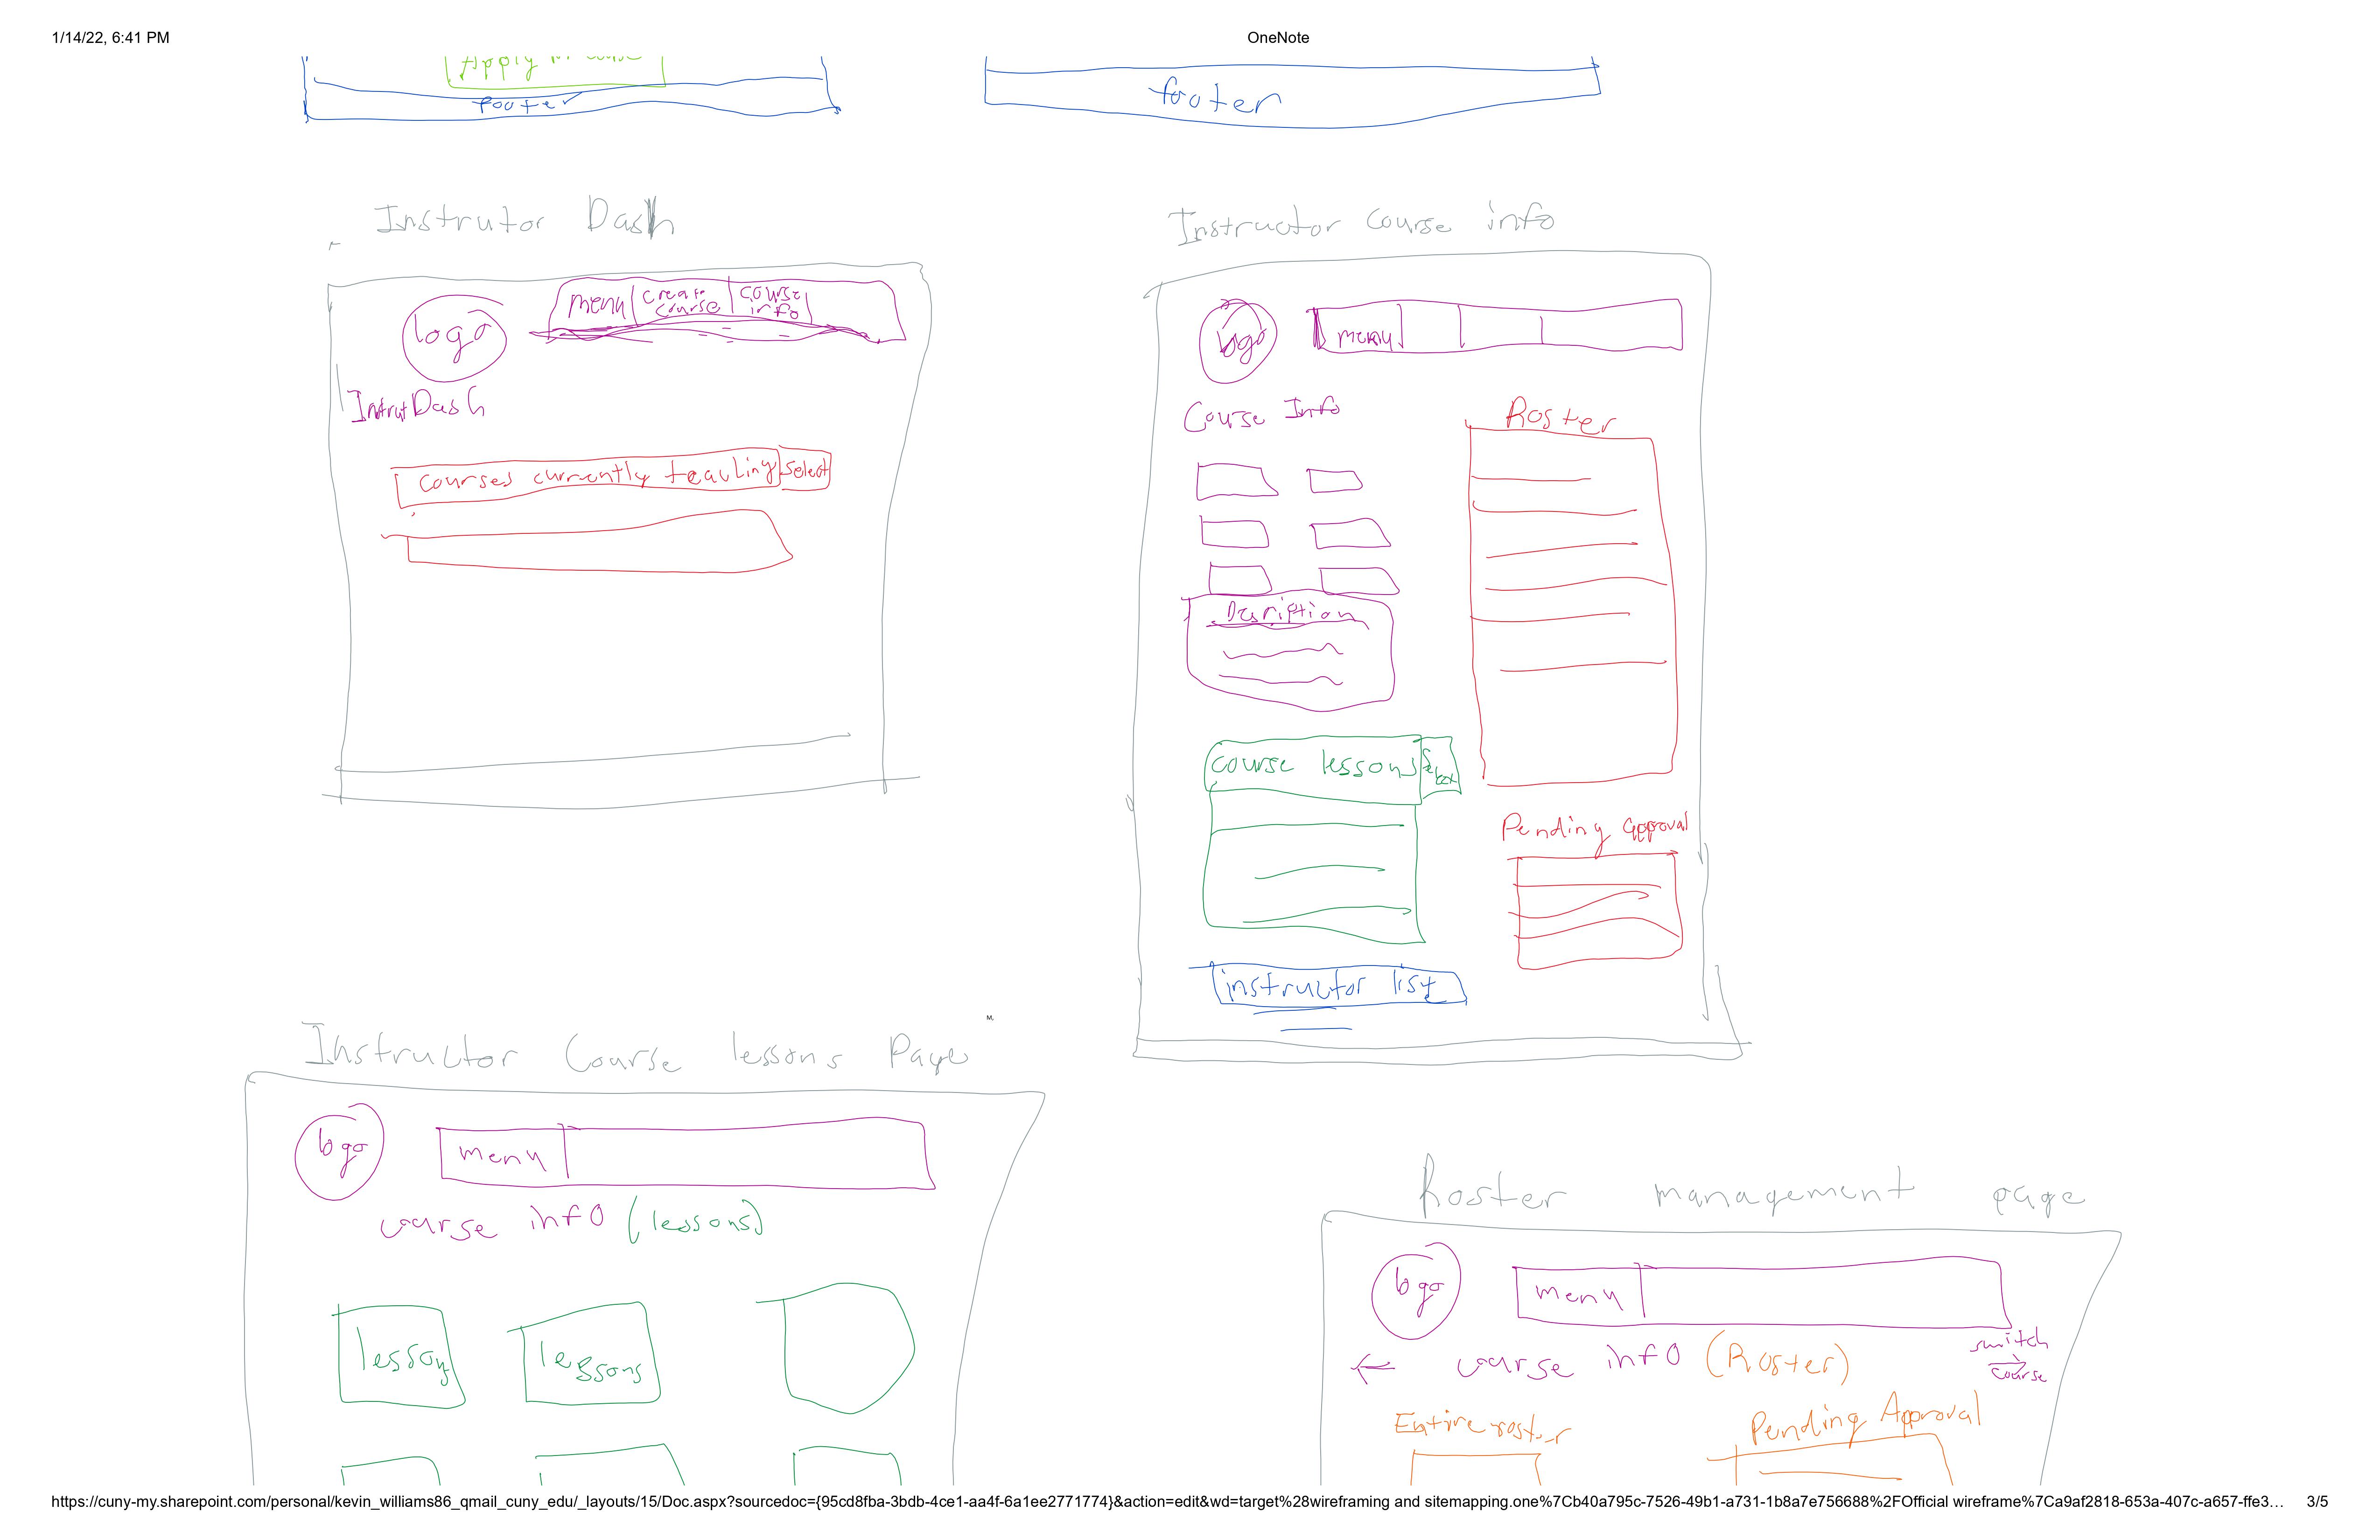 1/14/22, 6:41 PM
OneNote
Apply
footer
footer
Instrutor Dash
logo
menu
create course
course info
InstrutDash
courses currently teaching
select
Instructor Course info
logo
menu
Course Info
Roster
Desription
course lessons
Select
Pending approval
instructor list
Instructor Course lessons Page
logo
menu
course info (lessons)
lesson
lessons
Roster management page
logo
menu
course info (Roster)
switch
course
Entire roster
Pending Approval
https://cuny-my.sharepoint.com/personal/kevin_williams86_qmail_cuny_edu/_layouts/15/Doc.aspx?sourcedoc={95cd8fba-3bdb-4ce1-aa4f-6a1ee2771774}&action=edit&wd=target%28wireframing and sitemapping.one%7Cb40a795c-7526-49b1-a731-1b8a7e756688%2FOfficial wireframe%7Ca9af2818-653a-407c-a657-ffe3…
3/5